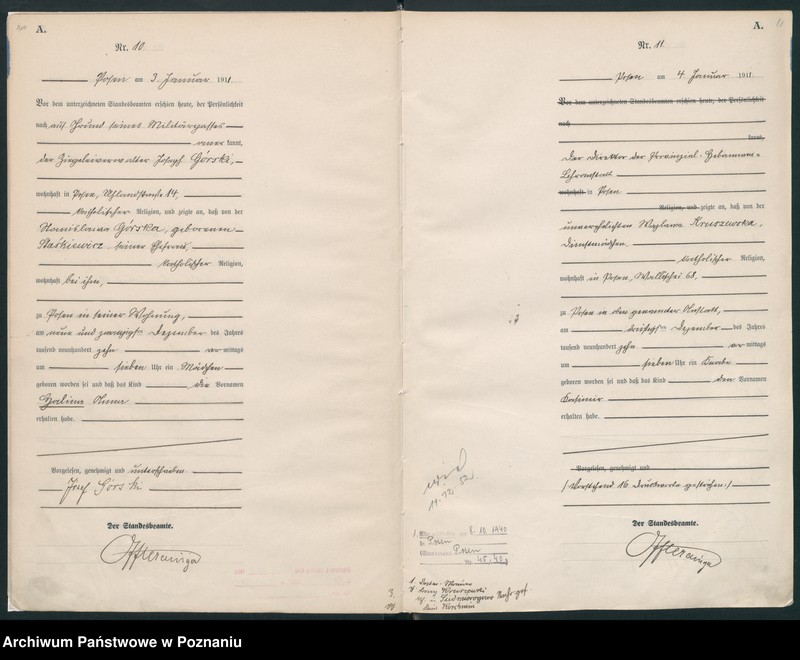 A.
Nr. 10.
Posen am 3. Januar 1911.
Vor dem unterzeichneten Standesbeamten erschien heute, der Persönlichkeit
nach auf Grund seines Militärpasses
kannt,
der Ziegeleiverwalter Joseph Górski,
wohnhaft in Posen, 14,
katholischer Religion, und zeigte an, daß von der
Stanislawa Górska, geborenen
Staśkiewicz seiner Ehefrau,
katholischer Religion,
wohnhaft bei ihm,
zu Posen in seiner Wohnung,
am neun und zwanzigsten Dezember des Jahres
tausend neunhundert zehn vormittags
um sieben Uhr ein Mädchen
geboren worden sei und daß das Kind die Vornamen
Halina Anna
erhalten habe.
Vorgelesen, genehmigt und unterschrieben
Józef Górski
Der Standesbeamte.
A.
11
Nr. 11.
Posen am 4. Januar 1911.
Vor dem unterzeichneten Standesbeamten erschien heute, der Persönlichkeit
nach
kannt,
Der Direktor der Provinzial-Hebammen-
Lehranstalt
wohnhaft in Posen
Religion, und zeigte an, daß von der
unverehelichten Kruszewska,
Dienstmädchen
katholischer Religion,
wohnhaft in Posen, Wallischei 68,
zu Posen in der genannten Anstalt,
am dreißigsten Dezember des Jahres
tausend neunhundert zehn vormittags
um sieben Uhr ein Knabe
geboren worden sei und daß das Kind den Vornamen
Kasimir
erhalten habe.
Vorgelesen, genehmigt und
/: Vorstehend 16 Druckworte gestrichen :/
Der Standesbeamte.
8. 10. 1940
Posen
Posen
Archiwum Państwowe w Poznaniu